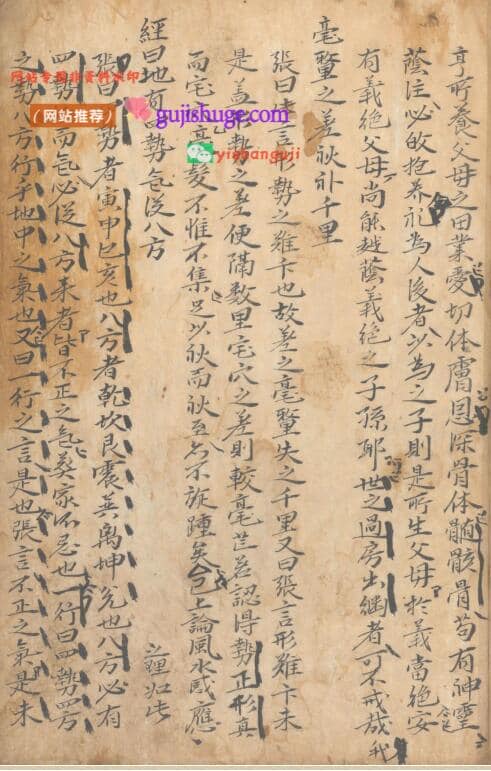 亨所養父母之田業愛切体膚恩深骨体髄骸骨苟有神靈
蔭注必敀抱养礼為人後者以為之子則是所生父母於義當絶安
有義绝父母尚能越蔭義绝之子孫耶世之過房出継者可不戒哉
毫釐之差秋扑千里
張曰夫言形勢之难卞也故差之毫釐失之千里又曰張言形难卞未
是盖形勢之差便隔数里宅穴之差則較毫芒若認得勢正形真
而宅毫髮不惟不集足以秋而秋至不旋踵矣已上論風水感應
經曰地有四勢气從八方
張曰四勢者寅申巳亥也八方者乾坎艮震巽离坤兑也八方必有
四勢而气必從八方来者皆不正之气葬家不忌也一行曰四勢四方
之勢八方行乎地中之气也又曰一行之言是也張言不正之气是未
网站专用非资料水印
(网站推荐)
gujishuge.com
yishanguji